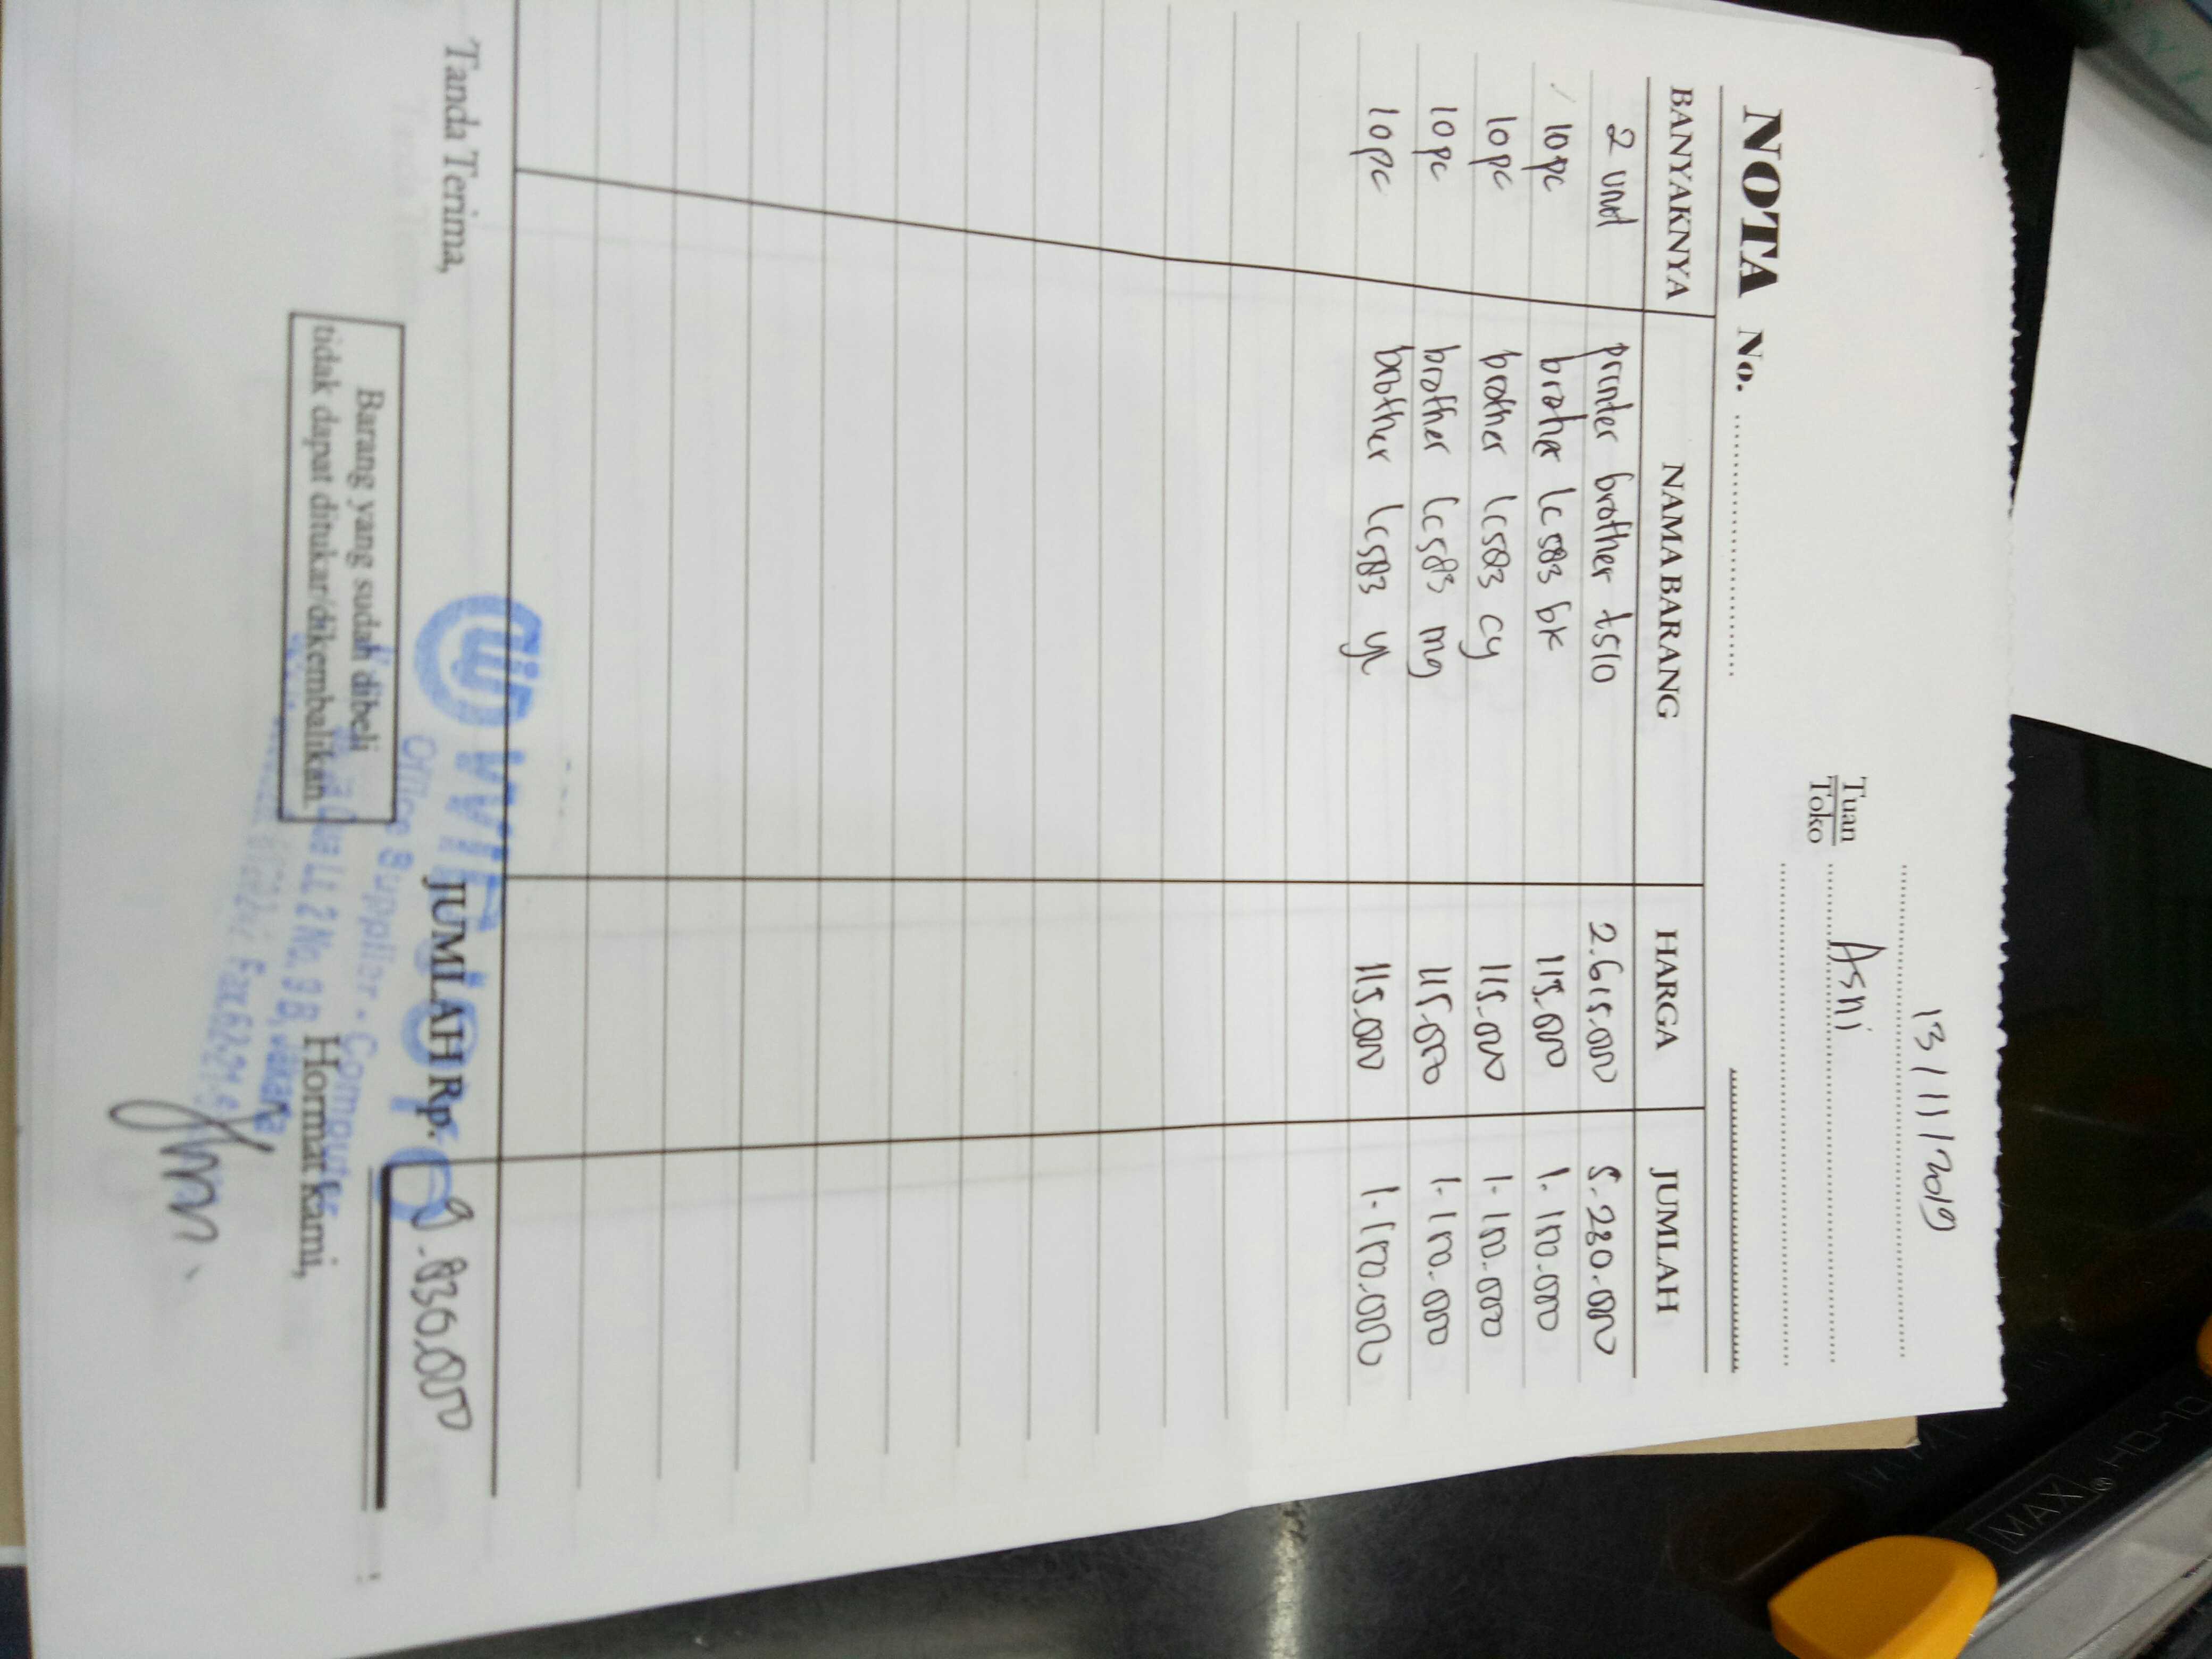 13/11/2019
Tuan
Toko
Asni
NOTA No.
BANYAKNYA NAMA BARANG HARGA JUMLAH
2 unit printer brother t510 2.615.000 5.230.000
10 pc brother lc583 bk 115.000 1.150.000
10 pc brother lc583 cy 115.000 1.150.000
10 pc brother lc583 mg 115.000 1.150.000
10 pc brother lc583 yl 115.000 1.150.000
JUMLAH Rp. 9.830.000
Tanda Terima,
Barang yang sudah dibeli
tidak dapat ditukar/dikembalikan
Hormat Kami,
Office Supplier - Computer
Lt. 2 No. 9 B,
MAX® HD-10